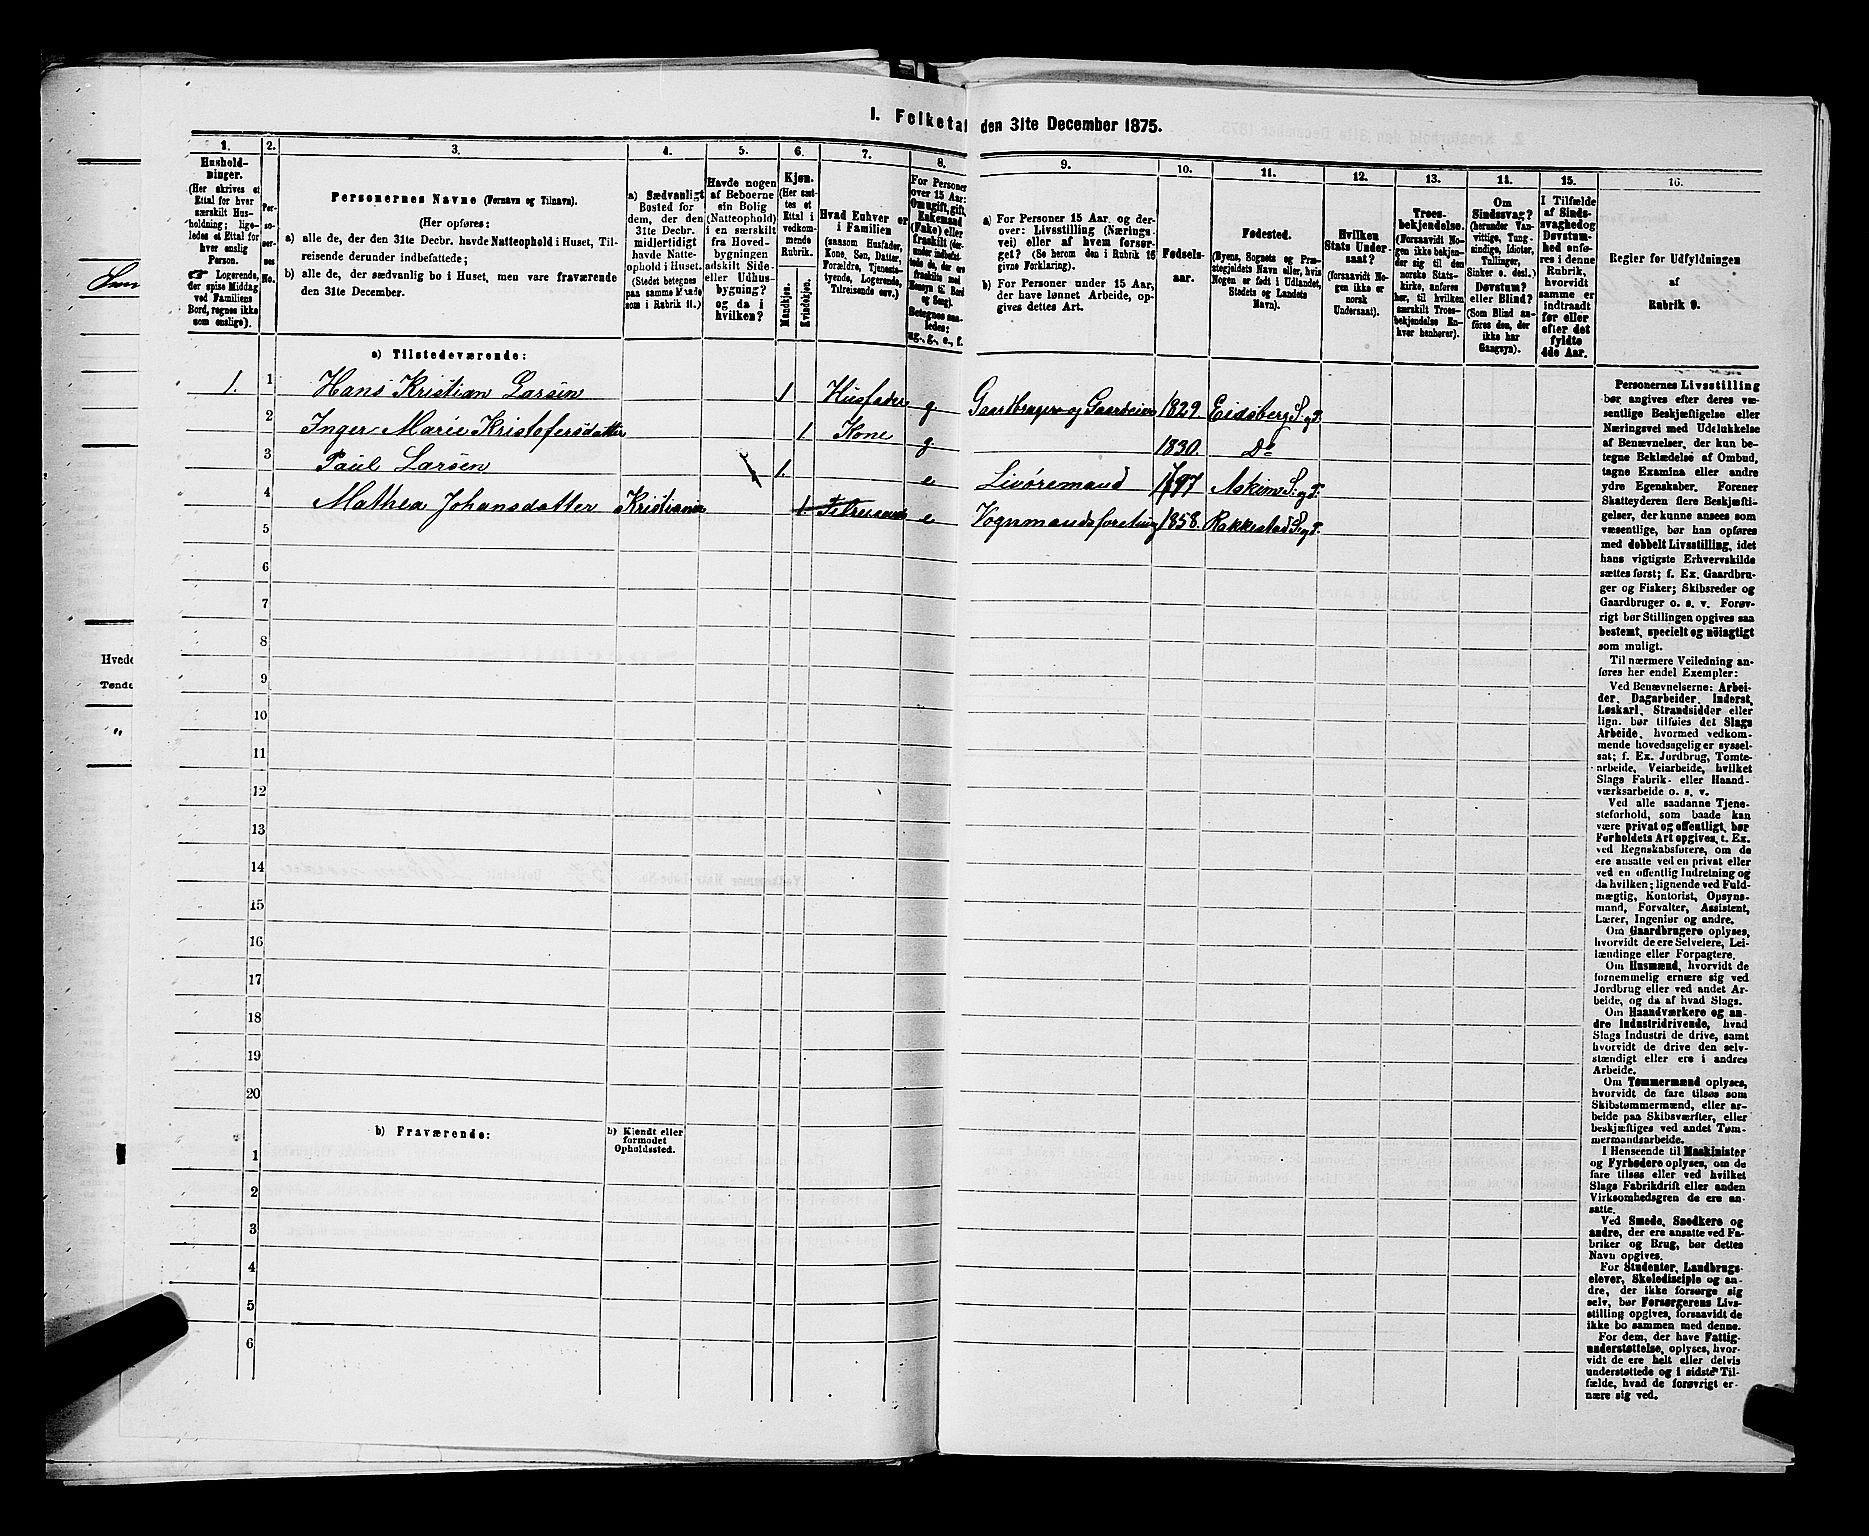 1. Folketal den 31te December 1875.
1.
2.
3.
4.
5.
6.
7.
8.
9.
10.
11.
12.
13.
14.
15.
16.
Hushold-
ninger.
(Her skrives et
Ettal for hver
særskilt Hus-
holdning; lige-
ledes et Ettal for
hver enslig
Person.
Logerende,
der spise Middag
ved Familiens
Bord, regnes ikke
som enslige).
Per-
so-
ner-
nes
No.
Personernes Navne (Fornavn og Tilnavn).
(Her opføres:
a) alle de, der den 31te Decbr. havde Natteophold i Huset, Til-
reisende derunder indbefattede;
b) alle de, der sædvanlig bo i Huset, men vare fraværende
den 31te December.
a) Sædvanligt
Bosted for
dem, der den
31te Decbr.
midlertidigt
havde Natte-
ophold i Huset.
(Stedet betegnes
paa samme Maade
som i Rubrik 11.)
Havde nogen
af Beboerne
sin Bolig
(Natteophold)
i en særskilt
fra Hoved-
bygningen
adskilt Side-
eller Udhus-
bygning?
og da i
hvilken?
Kjøn.
(Her sæt-
tes et
Ettal i
vedkom-
mende
Rubrik.
Mandkjøn.
Kvindekjøn.
Hvad Enhver er
i Familien
(saasom Husfader,
Kone, Søn, Datter,
Forældre, Tjeneste-
tyende, Logerende,
Tilreisende osv.)
For Personer
over 15 Aar:
Om ugift, gift,
Enkemand
(Enke) eller
fraskilt
Betegnes saa-
ledes:
ug., g., e., f.
a) For Personer 15 Aar. og der-
over: Livsstilling (Nærings-
vei) eller af hvem forsør-
get? (Se herom den i Rubrik 16
givne Forklaring).
b) For Personer under 15 Aar,
der have lønnet Arbeide, op-
gives dettes Art.
Fødsels-
aar.
Fødested.
(Byens, Sognets og Præ-
stegjeldets Navn eller, hvis
Nogen er født i Udlandet,
Stedets og Landets
Navn).
Hvilken
Stats Under-
saat?
(forsaavidt No-
gen ikke er
norsk
Undersaat).
Troes-
bekjendelse.
(Forsaavidt No-
gen ikke bekjen-
der sig til den
norske Stats-
kirke, anføres
her, til hvilken
særskilt Troes-
bekjendelse En-
hver henhører).
Om
Sindssvag?
(herunder Van-
vittige, Tung-
sindige, Idioter,
Tullinger,
Sinker o. desl.)
Døvstum?
eller Blind?
(Som Blind an-
føres den, der
ikke har
Gangsyn).
I Tilfælde
af Sinds-
svaghed og
Døvstum-
hed anfø-
res i denne
Rubrik,
hvorvidt
samme er
indtraadt
før eller
efter det
fyldte
4de Aar.
Regler for Udfyldningen
af
Rubrik 9.
a) Tilstedeværende:
1. 1 Hans Kristian Larsen 1 Husfader g Gaardbruger og Gaardeier 1829 Eidsberg S. g P.
2 Inger Marie Kristofersdatter 1 Kone g 1830. Do
3 Paul Larsen 1. e Livøremand 1797 Askim S. g P.
4 Mathea Johansdatter Kristiania 1. Tilreisende e Vognmandsforetning 1858. Rakkestad S. g P.
5
6
7
8
9
10
11
12
13
14
15
16
17
18
19
20
b) Fraværende:
b) Kjendt eller
formodet
Opholdssted.
1
2
3
4
5
6
Personernes Livsstilling
bør angives efter deres væ-
sentlige Beskjæftigelse eller
Næringsvei med Udelukkelse
af Benævnelser, der kun be-
tegne Beklædelse af Ombud,
tagne Examina eller andre
ydre Egenskaber. Forener
Skatteyderen flere Beskjæfti-
gelser, der kunne ansees som
væsentlige, bør han opføres
med dobbelt Livsstilling, idet
hans vigtigste Erhvervskilde
sættes først; f. Ex. Gaardbru-
ger og Fisker; Skibsreder og
Gaardbruger o. s. v. Forøv-
rigt bør Stillingen opgives saa
bestemt, specielt og nöiagtigt
som muligt.
Til nærmere Veiledning an-
føres her endel Exempler:
Ved Benævnelserne: Arbei-
der, Dagarbeider, Inderst,
Løskarl, Strandsidder eller
lign. bør tilføies det Slags
Arbeide, hvormed vedkom-
mende hovedsagelig er syssel-
sat; f. Ex. Jordbrug, Tomte-
arbeide, Veiarbeide, hvilket
Slags Fabrik- eller Haand-
værksarbeide o. s. v.
Ved alle saadanne Tjene-
steforhold, som baade kan
være privat og offentligt, bør
Forholdets Art opgives, t. Ex.
ved Regnskabsførere, om de
ere ansatte ved en privat eller
ved en offentlig Indretning og
da hvilken; lignende ved Fuld-
mægtig, Kontorist, Opsyns-
mand, Forvalter, Assistent,
Lærer, Ingeniør og andre.
Om Gaardbrugere oplyses,
hvorvidt de ere Selveiere, Lei-
lændinge eller Forpagtere.
Om Husmænd, hvorvidt de
fornemmelig ernære sig ved
Jordbrug eller ved andet Ar-
beide, og da af hvad Slags.
Om Haandværkere og an-
dre Industridrivende, hvad
Slags Industri de drive, samt
hvorvidt de drive den selv-
stændigt eller ere i andres
Arbeide.
Om Tømmermænd oplyses,
hvorvidt de fare tilsøs som
Skibstømmermænd, eller ar-
beide paa Skibsværfter, eller
beskjæftiges ved andet Tøm-
mermandsarbeide.
I Henseende til Maskinister
og Fyrbødere oplyses, om de
fare tilsøs eller ved hvilket
Slags Fabrikdrift eller anden
Virksomhedsgren de ere an-
satte.
Ved Smede, Snedkere og
andre, der ere ansatte ved Fa-
briker og Brug, bør dettes
Navn opgives.
For Studenter, Landbrugs-
elever, Skoledisciple og an-
dre, der ikke forsørge sig
selv, bør Forsørgerens Livs-
stilling opgives, forsaavidt de
ikke bo sammen med denne.
For dem, der have Fattig-
understøttelse, oplyses, hvor-
vidt de ere helt eller delvis
understøttede og i sidste Til-
fælde, hvad de forøvrigt er-
nære sig ved.
Hvede
Tønde